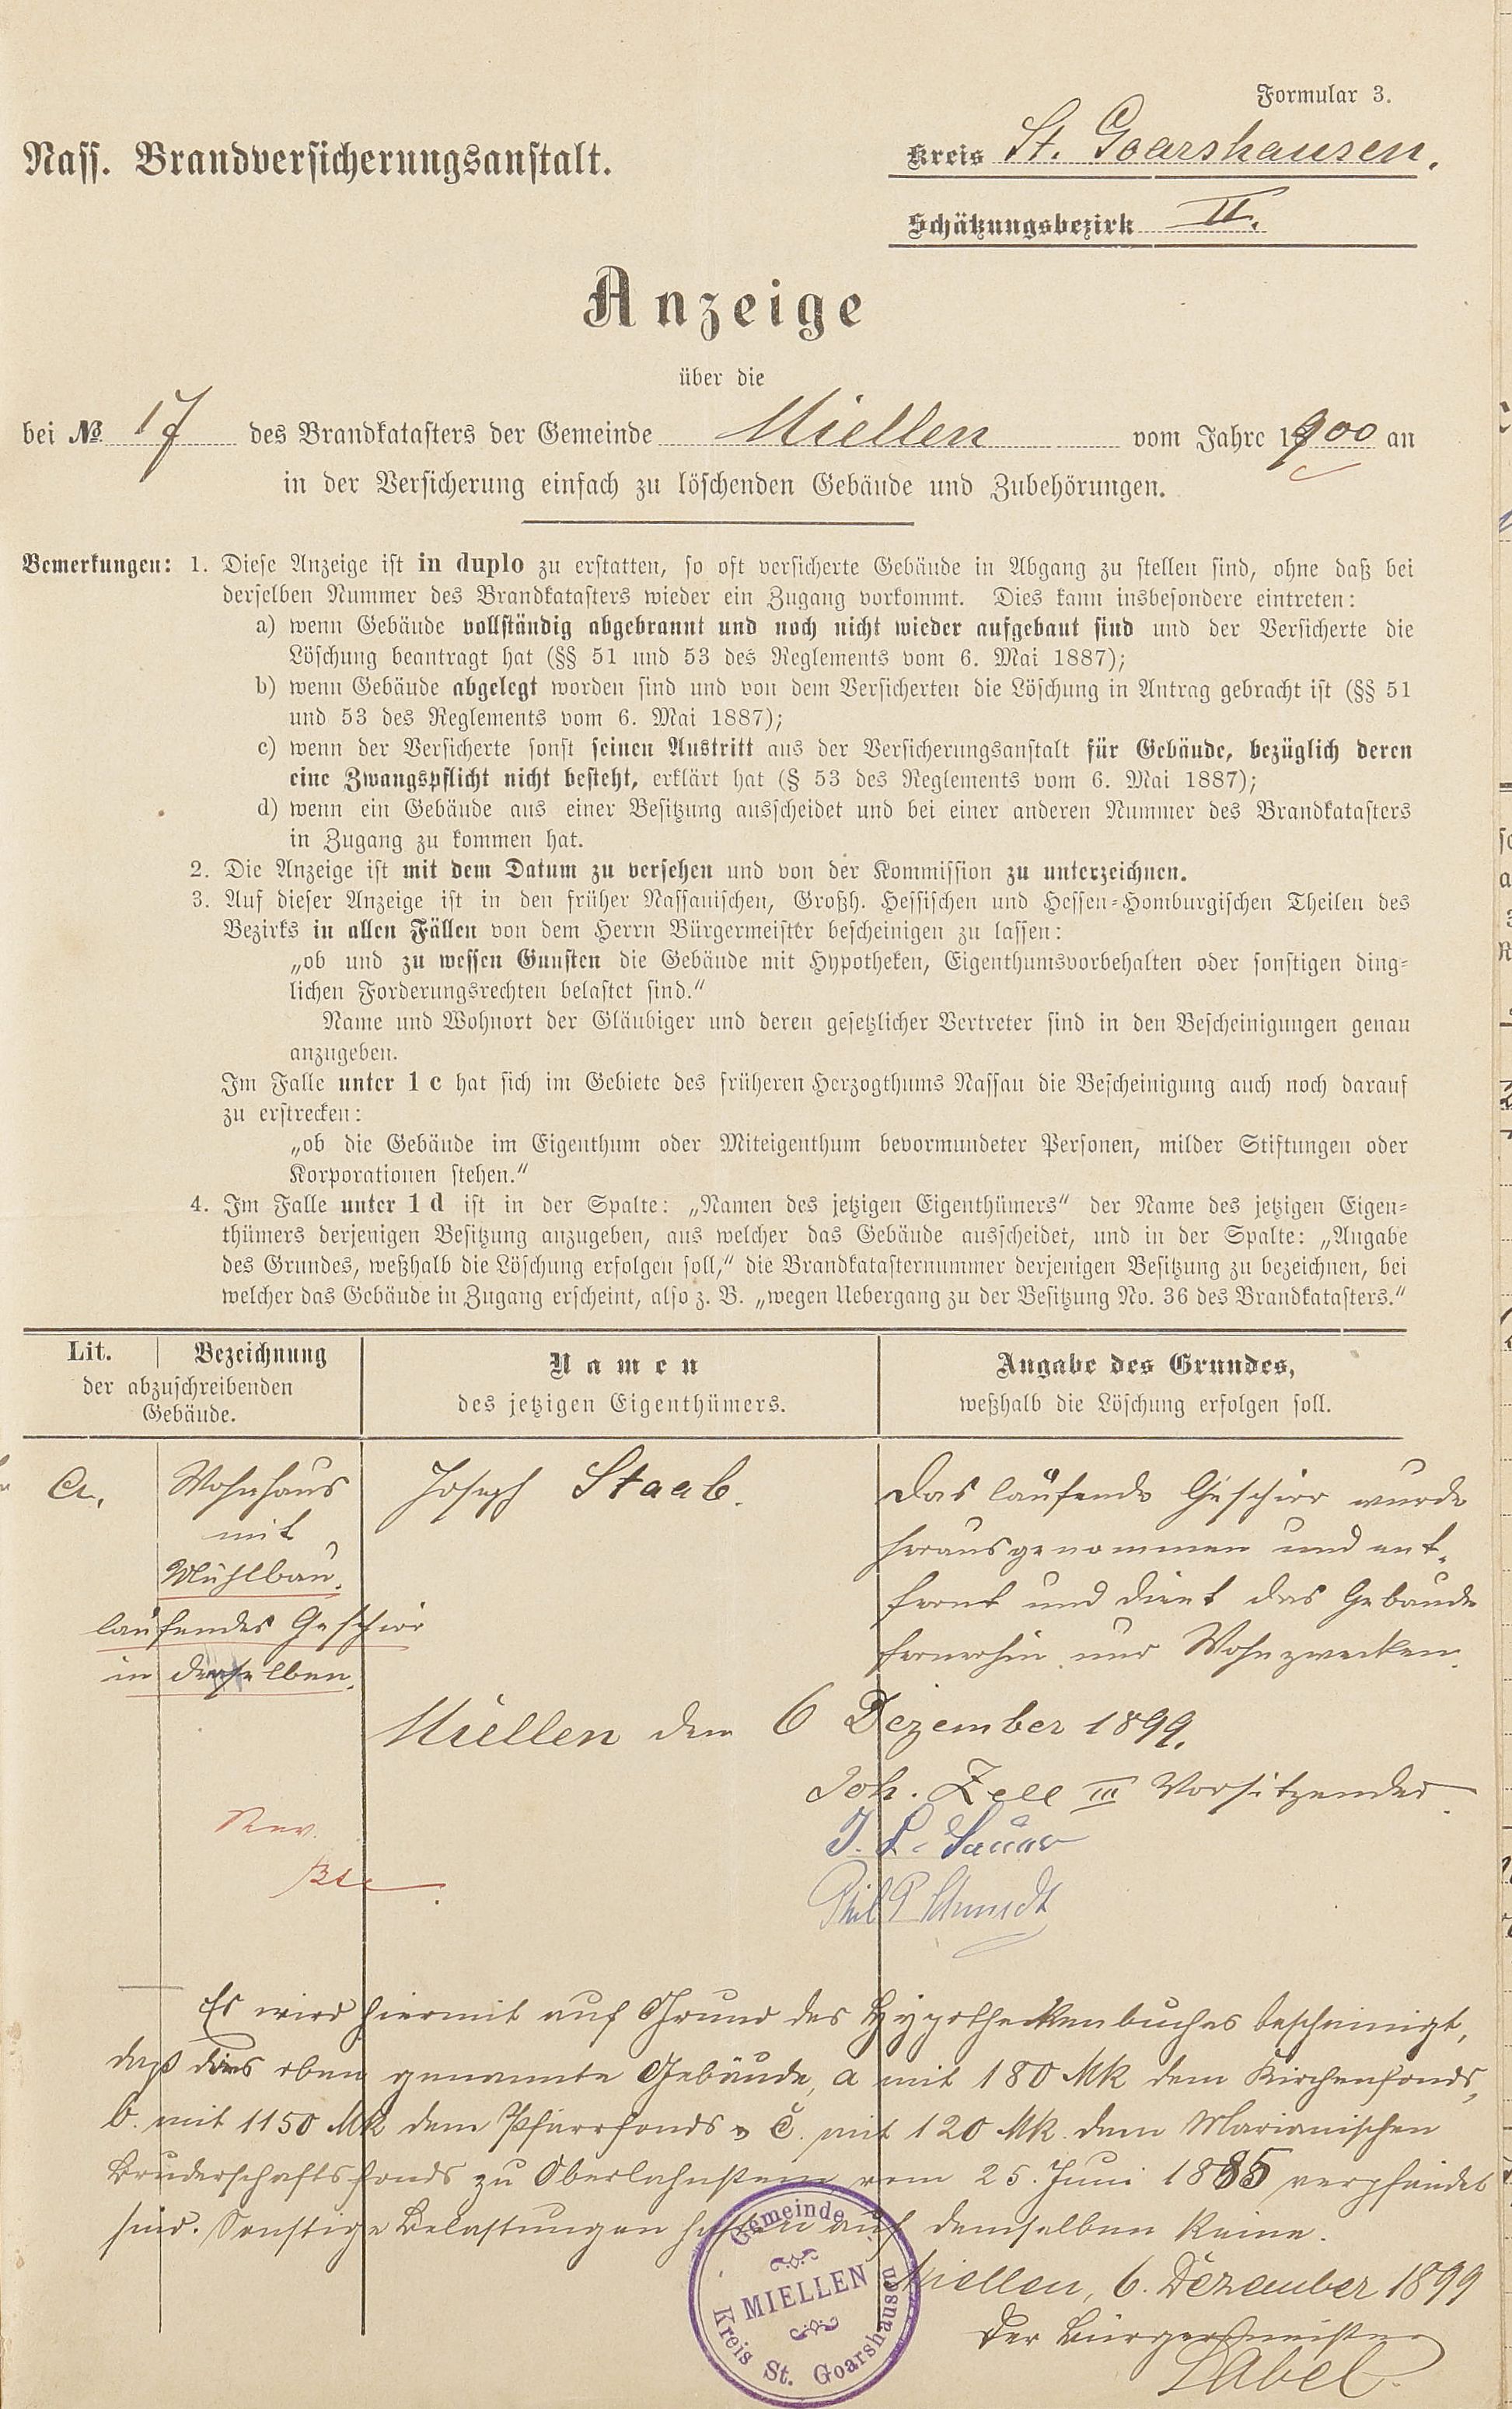 Formular 3.
Nass. Brandversicherungsanstalt.
Kreis St. Goarshausen.
Schätzungsbezirk II.
Anzeige
über die
bei No. 17 des Brandkatasters der Gemeinde Miellen vom Jahre 1900 an
in der Versicherung einfach zu löschenden Gebäude und Zubehörungen.
Bemerkungen: 1. Diese Anzeige ist in duplo zu erstatten, so oft versicherte Gebäude in Abgang zu stellen sind, ohne daß bei
derselben Nummer des Brandkatasters wieder ein Zugang vorkommt. Dies kann insbesondere eintreten:
a) wenn Gebäude vollständig abgebrannt und noch nicht wieder aufgebaut sind und der Versicherte die
Löschung beantragt hat (§§ 51 und 53 des Reglements vom 6. Mai 1887);
b) wenn Gebäude abgelegt worden sind und von dem Versicherten die Löschung in Antrag gebracht ist (§§ 51
und 53 des Reglements vom 6. Mai 1887);
c) wenn der Versicherte sonst seinen Austritt aus der Versicherungsanstalt für Gebäude, bezüglich deren
eine Zwangspflicht nicht besteht, erklärt hat (§ 53 des Reglements vom 6. Mai 1887);
d) wenn ein Gebäude aus einer Besitzung ausscheidet und bei einer anderen Nummer des Brandkatasters
in Zugang zu kommen hat.
2. Die Anzeige ist mit dem Datum zu versehen und von der Kommission zu unterzeichnen.
3. Auf dieser Anzeige ist in den früher Nassauischen, Großh. Hessischen und Hessen-Homburgischen Theilen des
Bezirks in allen Fällen von dem Herrn Bürgermeister bescheinigen zu lassen:
„ob und zu wessen Gunsten die Gebäude mit Hypotheken, Eigenthumsvorbehalten oder sonstigen ding-
lichen Forderungsrechten belastet sind.“
Name und Wohnort der Gläubiger und deren gesetzlicher Vertreter sind in den Bescheinigungen genau
anzugeben.
Im Falle unter 1 c hat sich im Gebiete des früheren Herzogthums Nassau die Bescheinigung auch noch darauf
zu erstrecken:
„ob die Gebäude im Eigenthum oder Miteigenthum bevormundeter Personen, milder Stiftungen oder
Korporationen stehen.“
4. Im Falle unter 1 d ist in der Spalte: „Namen des jetzigen Eigenthümers“ der Name des jetzigen Eigen-
thümers derjenigen Besitzung anzugeben, aus welcher das Gebäude ausscheidet, und in der Spalte: „Angabe
des Grundes, weßhalb die Löschung erfolgen soll,“ die Brandkatasternummer derjenigen Besitzung zu bezeichnen, bei
welcher das Gebäude in Zugang erscheint, also z. B. „wegen Uebergang zu der Besitzung No. 36 des Brandkatasters.“
Lit. Bezeichnung
der abzuschreibenden
Gebäude.
Namen
des jetzigen Eigenthümers.
Angabe des Grundes,
weßhalb die Löschung erfolgen soll.
a. Wohnhaus
mit
Mühlbau.
laufendes Geschirr
in denselben.
Joseph Staab.
Das laufende Geschirr wurde
herausgenommen und ent-
fernt und dient das Gebäude
fernerhin nur Wohnzwecken.
Miellen den 6 Dezember 1899.
Joh. Zell III Vorsitzender
J. P. Sauer
Phil P Schmidt
Rev.
Es wird hiermit auf Grund des Hypothekenbuches bescheinigt,
daß dies oben genannte Gebäude, a mit 180 Mk dem Kirchenfonds,
b. mit 1150 Mk dem Pfarrfonds u c. mit 120 Mk. dem Marianischen
Bruderschaftsfonds zu Oberlahnstein vom 25. Juni 1885 verpfändet
sind. Sonstige Belastungen haften auf demselben keine.
Miellen, 6. Dezember 1899
Der Bürgermeister
Label
Gemeinde
MIELLEN
Kreis St. Goarshausen